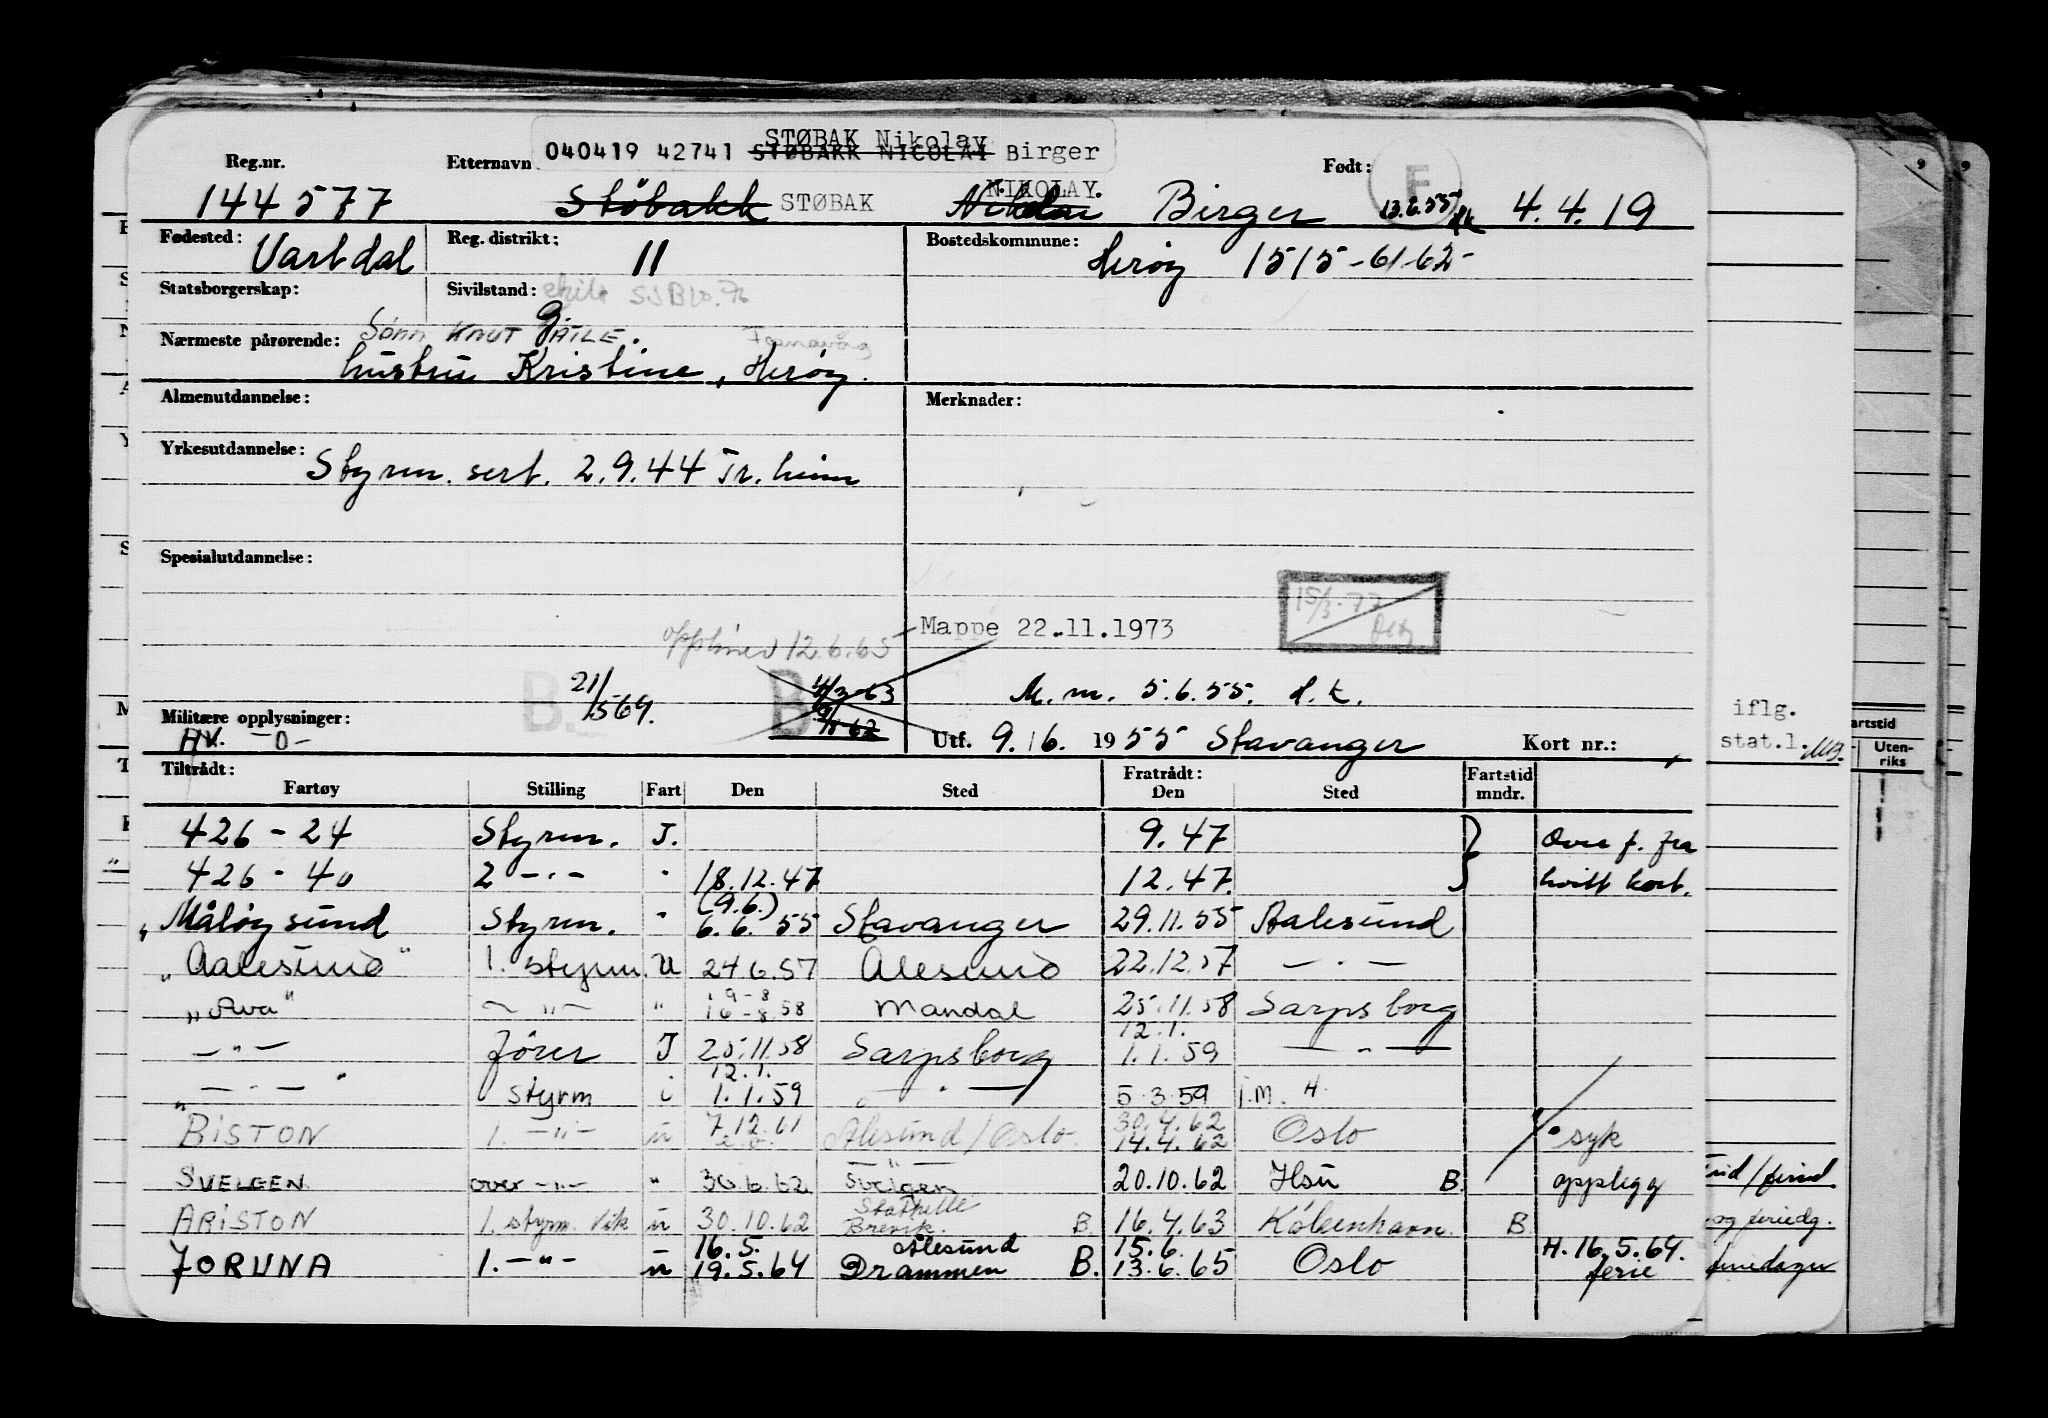 STØBAK Nikolay
Reg.nr. Etternavn 040419 42741 STØBAKK NICOLAI Birger Født: F
NIKOLAY.
144577 Støbakk STØBAK Nikolai Birger 13.6.55 4.4.19
Fødested: Vartdal Reg. distrikt: 11 Bostedskommune: Herøy 1515-61-62-
Statsborgerskap: Sivilstand: skilt
g
Nærmeste pårørende: Sønn KNUT ATLE.
hustru Kristine, Herøy.
Almenutdannelse: Merknader:
Yrkesutdannelse: Styrm. sert. 2.9.44 Tr.heim
Spesialutdannelse:
15/3-77
Mappe 22.11.1973
12.6.65
B. 21/5 64. B 4/3-63
M.m. 5.6.55. H.k.
Militære opplysninger: HV. -0-
Utf. 9.6. 1955 Stavanger Kort nr.:
iflg.
stat.l.
Tiltrådt: Fratrådt: Fartstid
Fartøy Stilling Fart Den Sted Den Sted mndr.
artstid
Uten-
riks
426-24 Styrm. I. 9.47 } Over f. fra
426-40 2 -"- " 18.12.47 12.47. hvitt kort.
(9.6.)
"Måløysund Styrm. " 6.6.55 Stavanger 29.11.55 Aalesund
"Aalesund" 1. styrm. U 24.6.57 Alesund 22.12.57 -"-
"Ava" -"- " 19-8 16-8.58 Mandal 25.11.58 Sarpsborg
-"- fører I 25.11.58 Sarpsborg 12.1. 1.1.59 -"-
-"- styrm i 12.1. 1.1.59 -"- 5.3.59 i.M. H.
ARISTON 1. -"- u 7.12.61 Alesund/Oslo. 30.4.62 14.4.62 Oslo syk
SVELGEN over-"- " 30.6.62 Svelgen 20.10.62 Hsu B. opplegg
ARISTON 1. styrm. vik u 30.10.62 Stathelle Brevik. B. 16.4.63 København. B.
og feriedg.
JORUNA 1. -"- u 16.5. 19.5.64 Alesund Drammen B. 15.6. 13.6.65 Oslo H. 16.5.64. ferie
feriedager